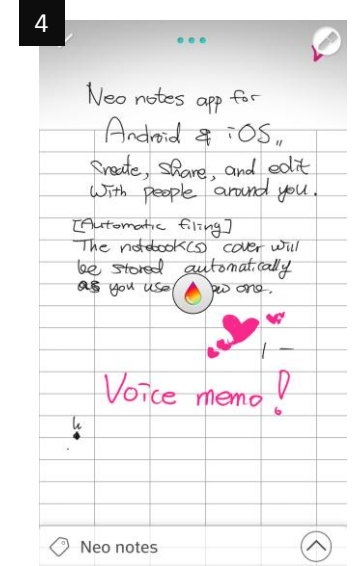 4
Neo notes app for
Android & iOS,,
Create, Share, and edit
with people around you.
[Automatic filing]
The notebook(s) cover will
be stored automatically
as you use one.
Voice memo!
Neo notes